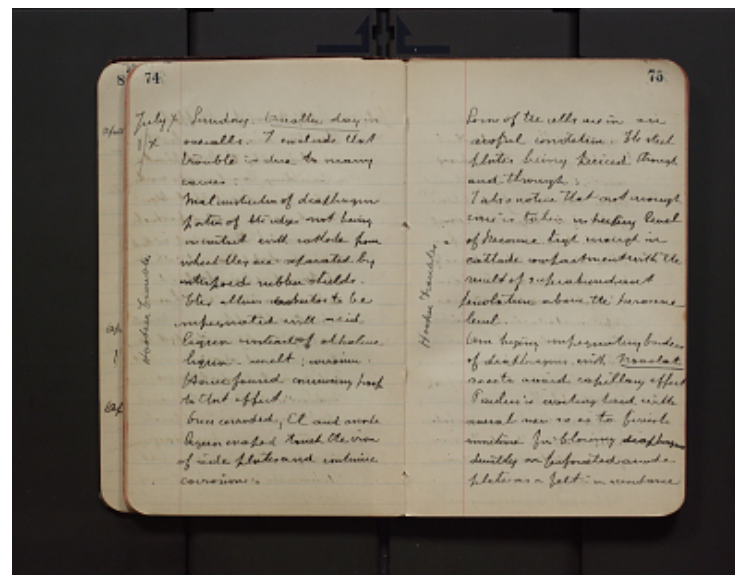 8
74
July
Sunday. Another day in
overalls. I conclude that
trouble is due to many
causes:
Mal construction of diaphragm
portion of the edges not being
in contact with cathode from
which they are separated by
interposed rubber shields.
This allows to be
impregnated with acid
liquor instead of alkaline
liquor result: corrosion.
Have found convincing proof
to that effect.
Once corroded, Cl and anode
liquor escaped touch the iron
of side plates and continue
corrosion.
Hooker Trouble
75
Some of the cells are in an
awful condition. The steel
plates being through
and through.
I also notice that not enough
care is taken in keeping level
of kerosene high enough in
cathode compartment with the
result of superabundant
percolation above the kerosene
level.
Am trying impregnating borders
of diaphragms with
so as to avoid capillary effect
is working hard with
several men so as to finish
for blowing diaphragm
directly on perforated
plate as a felt in
Hooker Troubles